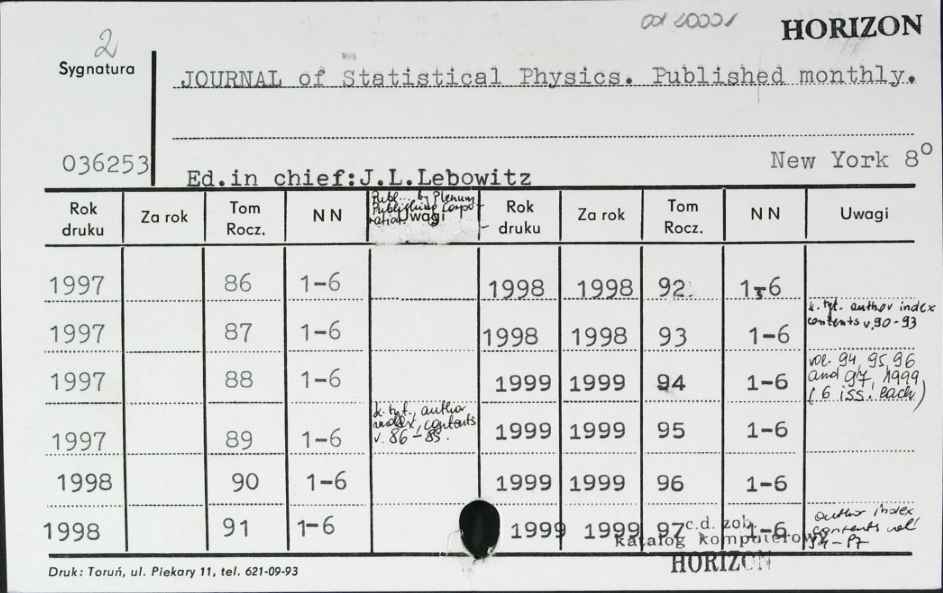 2 od 2000r HORIZON
Sygnatura
JOURNAL of Statistical Physics. Published monthly.
036253 New York 8°
Ed.in chief:J.L.Lebowitz
Publ. by Plenum
Publishing Corpo-
ration
Rok druku Za rok Tom Rocz. N N Uwagi Rok druku Za rok Tom Rocz. N N Uwagi
1997 86 1-6 1998 1998 92 1-6
1997 87 1-6 1998 1998 93 1-6 k. tyt. author index contents v. 90-93
1997 88 1-6 1999 1999 94 1-6 vol. 94, 95, 96 and 97, 1999 (6 iss. each)
1997 89 1-6 k. tyt. author index, contents v. 86-89. 1999 1999 95 1-6
1998 90 1-6 1999 1999 96 1-6
1998 91 1-6 1999 1999 97 1-6 author index contents vol. 94-97
c.d. zob.
katalog komputerowy
HORIZON
Druk: Toruń, ul. Piekary 11, tel. 621-09-93